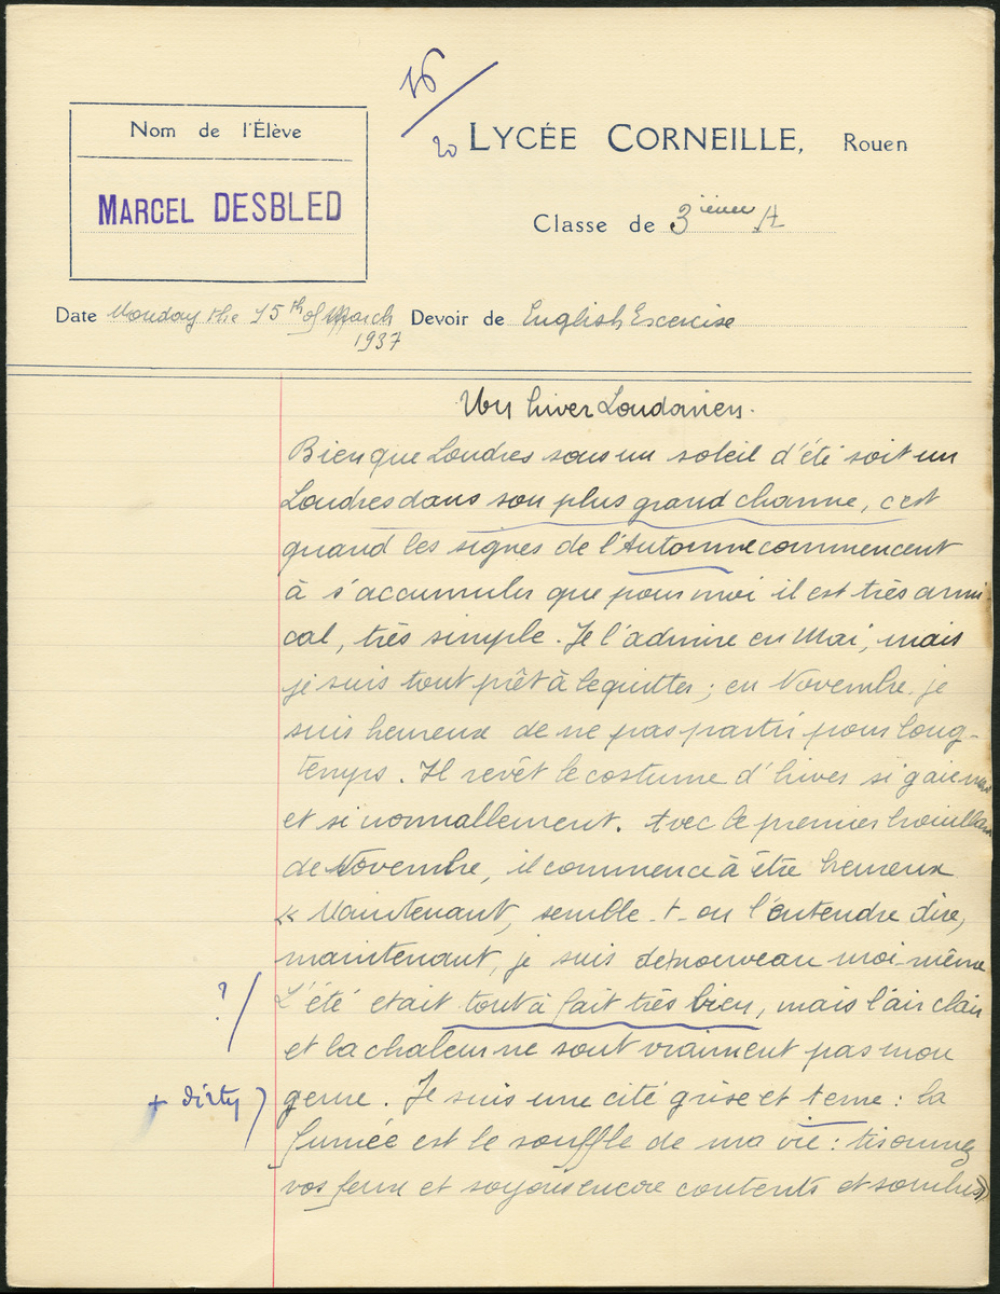 16/20
Nom de l'Élève
MARCEL DESBLED
LYCÉE CORNEILLE, Rouen
Classe de 3ième A
Date Monday the 15th of March 1937 Devoir de English Exercise
Un hiver Londonien.
Bien que Londres sous un soleil d'été soit un
Londres dans son plus grand charme, c'est
quand les signes de l'Automne commencent
à s'accumuler que pour moi il est très ami
cal, très simple. Je l'admire en Mai, mais
je suis tout prêt à le quitter ; en Novembre je
suis heureux de ne pas partir pour long-
temps. Il revêt le costume d'hiver si gaiement
et si normallement. Avec le premier brouillard
de Novembre, il commence à être heureux
« Maintenant, semble-t-on l'entendre dire,
maintenant, je suis de nouveau moi-même
? / L'été était tout à fait très bien, mais l'air clair
et la chaleur ne sont vraiment pas mon
+ dirty ) genre. Je suis une cité grise et terne : la
fumée est le souffle de ma vie : tisonnez
vos feux et soyons encore contents et sombres »